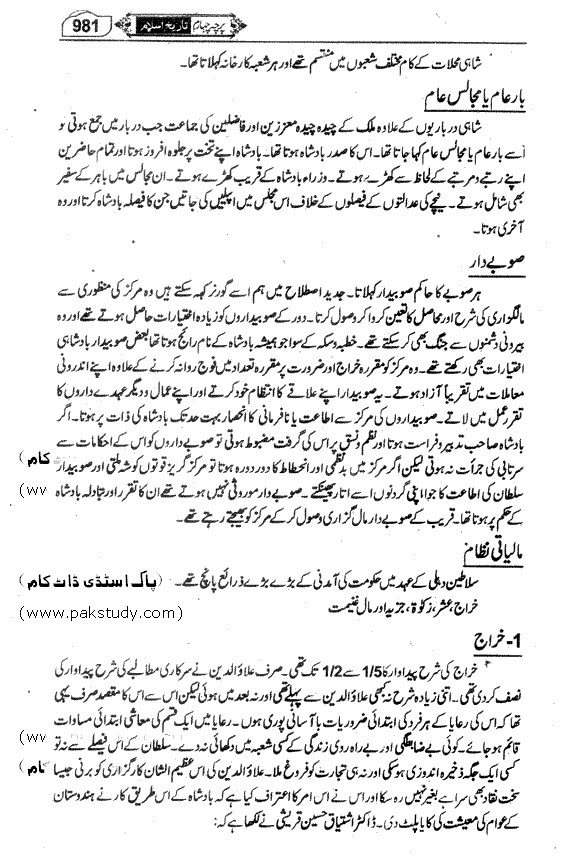 981 پرچہ چہارم تاریخ اسلام
شاہی محلات کے کام مختلف شعبوں میں منقسم تھے اور ہر شعبہ کارخانہ کہلاتا تھا۔
بار عام یا مجالس عام
شاہی درباریوں کے علاوہ ملک کے چیدہ چیدہ معززین اور فاضلین کی جماعت جب دربار میں جمع ہوتی تو
اسے بار عام یا مجالس عام کہا جاتا تھا۔ اس کا صدر بادشاہ ہوتا تھا۔ بادشاہ اپنے تخت پر جلوہ افروز ہوتا اور تمام حاضرین
اپنے رتبے و مرتبے کے لحاظ سے کھڑے ہوتے۔ وزراء بادشاہ کے قریب کھڑے ہوتے۔ ان مجالس میں باہر کے سفیر
بھی شامل ہوتے۔ نیچے کی عدالتوں کے فیصلوں کے خلاف اس مجلس میں اپلیں کی جاتیں جن کا فیصلہ بادشاہ کرتا اور وہ
آخری ہوتا۔
صوبے دار
ہر صوبے کا حاکم صوبیدار کہلاتا۔ جدید اصطلاح میں ہم اسے گورنر کہہ سکتے ہیں وہ مرکز کی منظوری سے
مالگزاری کی شرح اور محاصل کا تعین کروا کر وصول کرتا۔ دور کے صوبیداروں کو زیادہ اختیارات حاصل ہوتے تھے اور وہ
بیرونی دشمنوں سے جنگ بھی کر سکتے تھے۔ خطبہ و سکہ کے سوا جو ہمیشہ بادشاہ کے نام رائج ہوتا تھا بعض صوبیدار بادشاہی
اختیارات بھی رکھتے تھے۔ وہ مرکز کو مقررہ خراج اور ضرورت پر مقررہ تعداد میں فوج روانہ کرنے کے علاوہ اپنے اندرونی
معاملات میں تقریباً آزاد ہوتے۔ یہ صوبیدار اپنے علاقے کا انتظام خود کرتے اور اپنے عمال و دیگر عہدے داروں کا
تقرر عمل میں لاتے۔ صوبیداروں کی مرکز سے اطاعت یا نافرمانی کا انحصار بہت حد تک بادشاہ کی ذات پر ہوتا۔ اگر
بادشاہ صاحب تدبیر و فراست ہوتا اور نظم و نسق پر اس کی گرفت مضبوط ہوتی تو صوبے داروں کو اس کے احکامات سے
سرتابی کی جرأت نہ ہوتی لیکن اگر مرکز میں بدنظمی اور انحطاط کا دور دورہ ہوتا تو مرکز گریز قوتوں کو شہ ملتی اور صوبیدار کام)
سلطان کی اطاعت کا جوا اپنی گردنوں سے اتار پھینکتے۔ صوبے دار موروثی نہیں ہوتے تھے ان کا تقرر اور تبادلہ بادشاہ (ww
کے حکم پر ہوتا تھا۔ قریب کے صوبے دار مال گزاری وصول کر کے مرکز کو بھیجتے رہتے تھے۔
مالیاتی نظام
سلاطین دہلی کے عہد میں حکومت کی آمدنی کے بڑے بڑے ذرائع پانچ تھے۔ (پاک اسٹڈی ڈاٹ کام)
خراج، عشر، زکوٰۃ، جزیہ اور مال غنیمت (www.pakstudy.com)
1- خراج
خراج کی شرح پیداوار کا 1/5 سے 1/2 تک تھی۔ صرف علاؤ الدین نے سرکاری مطالبے کی شرح پیداوار کی
نصف کر دی تھی۔ اتنی زیادہ شرح نہ کبھی علاؤ الدین سے پہلے تھی اور نہ بعد میں ہوئی لیکن اس سے اس کا مقصد صرف یہی
تھا کہ اس کی رعایا کے ہر فرد کی ابتدائی ضروریات با آسانی پوری ہوں۔ رعایا میں ایک قسم کی معاشی ابتدائی مساوات
قائم ہو جائے۔ کوئی بے ضابطگی اور بے راہ روی زندگی کے کسی شعبہ میں دکھائی نہ دے۔ سلطان کے اس فیصلے سے نہ تو (ww
کسی ایک جگہ ذخیرہ اندوزی ہو سکی اور نہ ہی تجارت کو فروغ ملا۔ علاؤ الدین کی اس عظیم الشان کارگزاری کو برنی جیسا کام)
سخت نقاد بھی سراہے بغیر نہیں رہ سکا اور اس نے اس امر کا اعتراف کیا ہے کہ بادشاہ کے اس طریق کار نے ہندوستان
کے عوام کی معیشت کی کایا پلٹ دی۔ ڈاکٹر اشتیاق حسین قریشی نے لکھا ہے کہ: